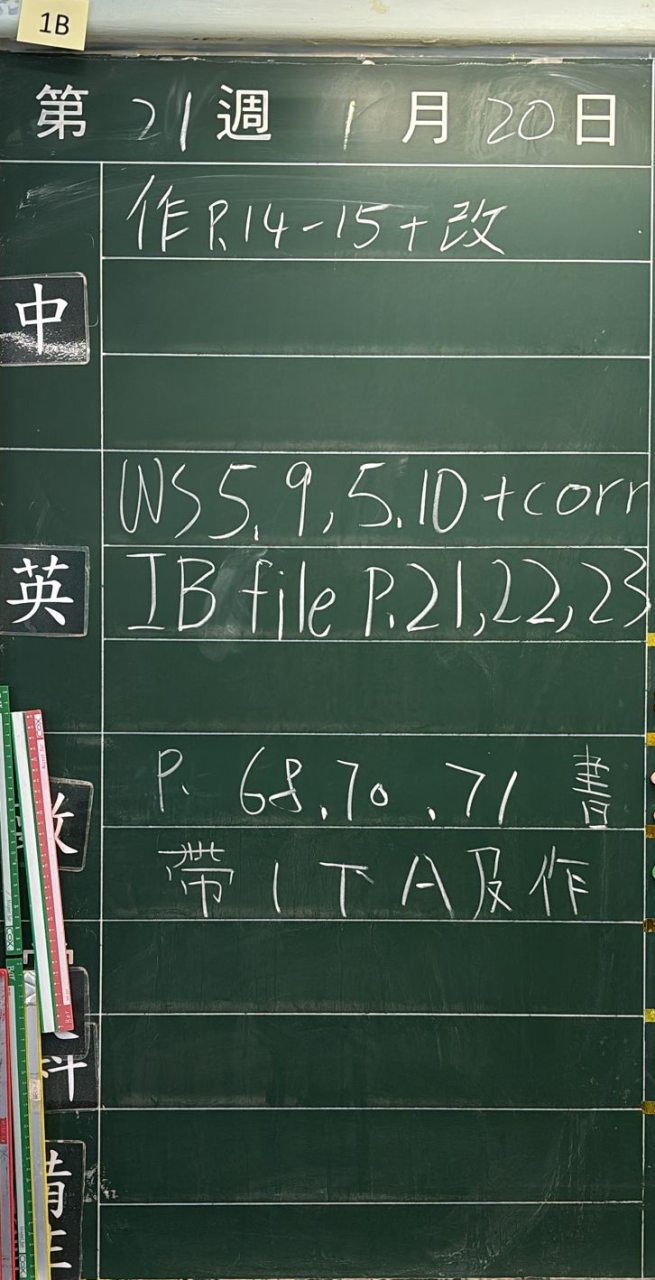 1B
第 21 週 1 月 20 日
作 P.14-15+改
中
WS 5.9, 5.10 +corr
英
IB file P.21,22,23
P. 68.70.71 書
帶 1下A及作
科